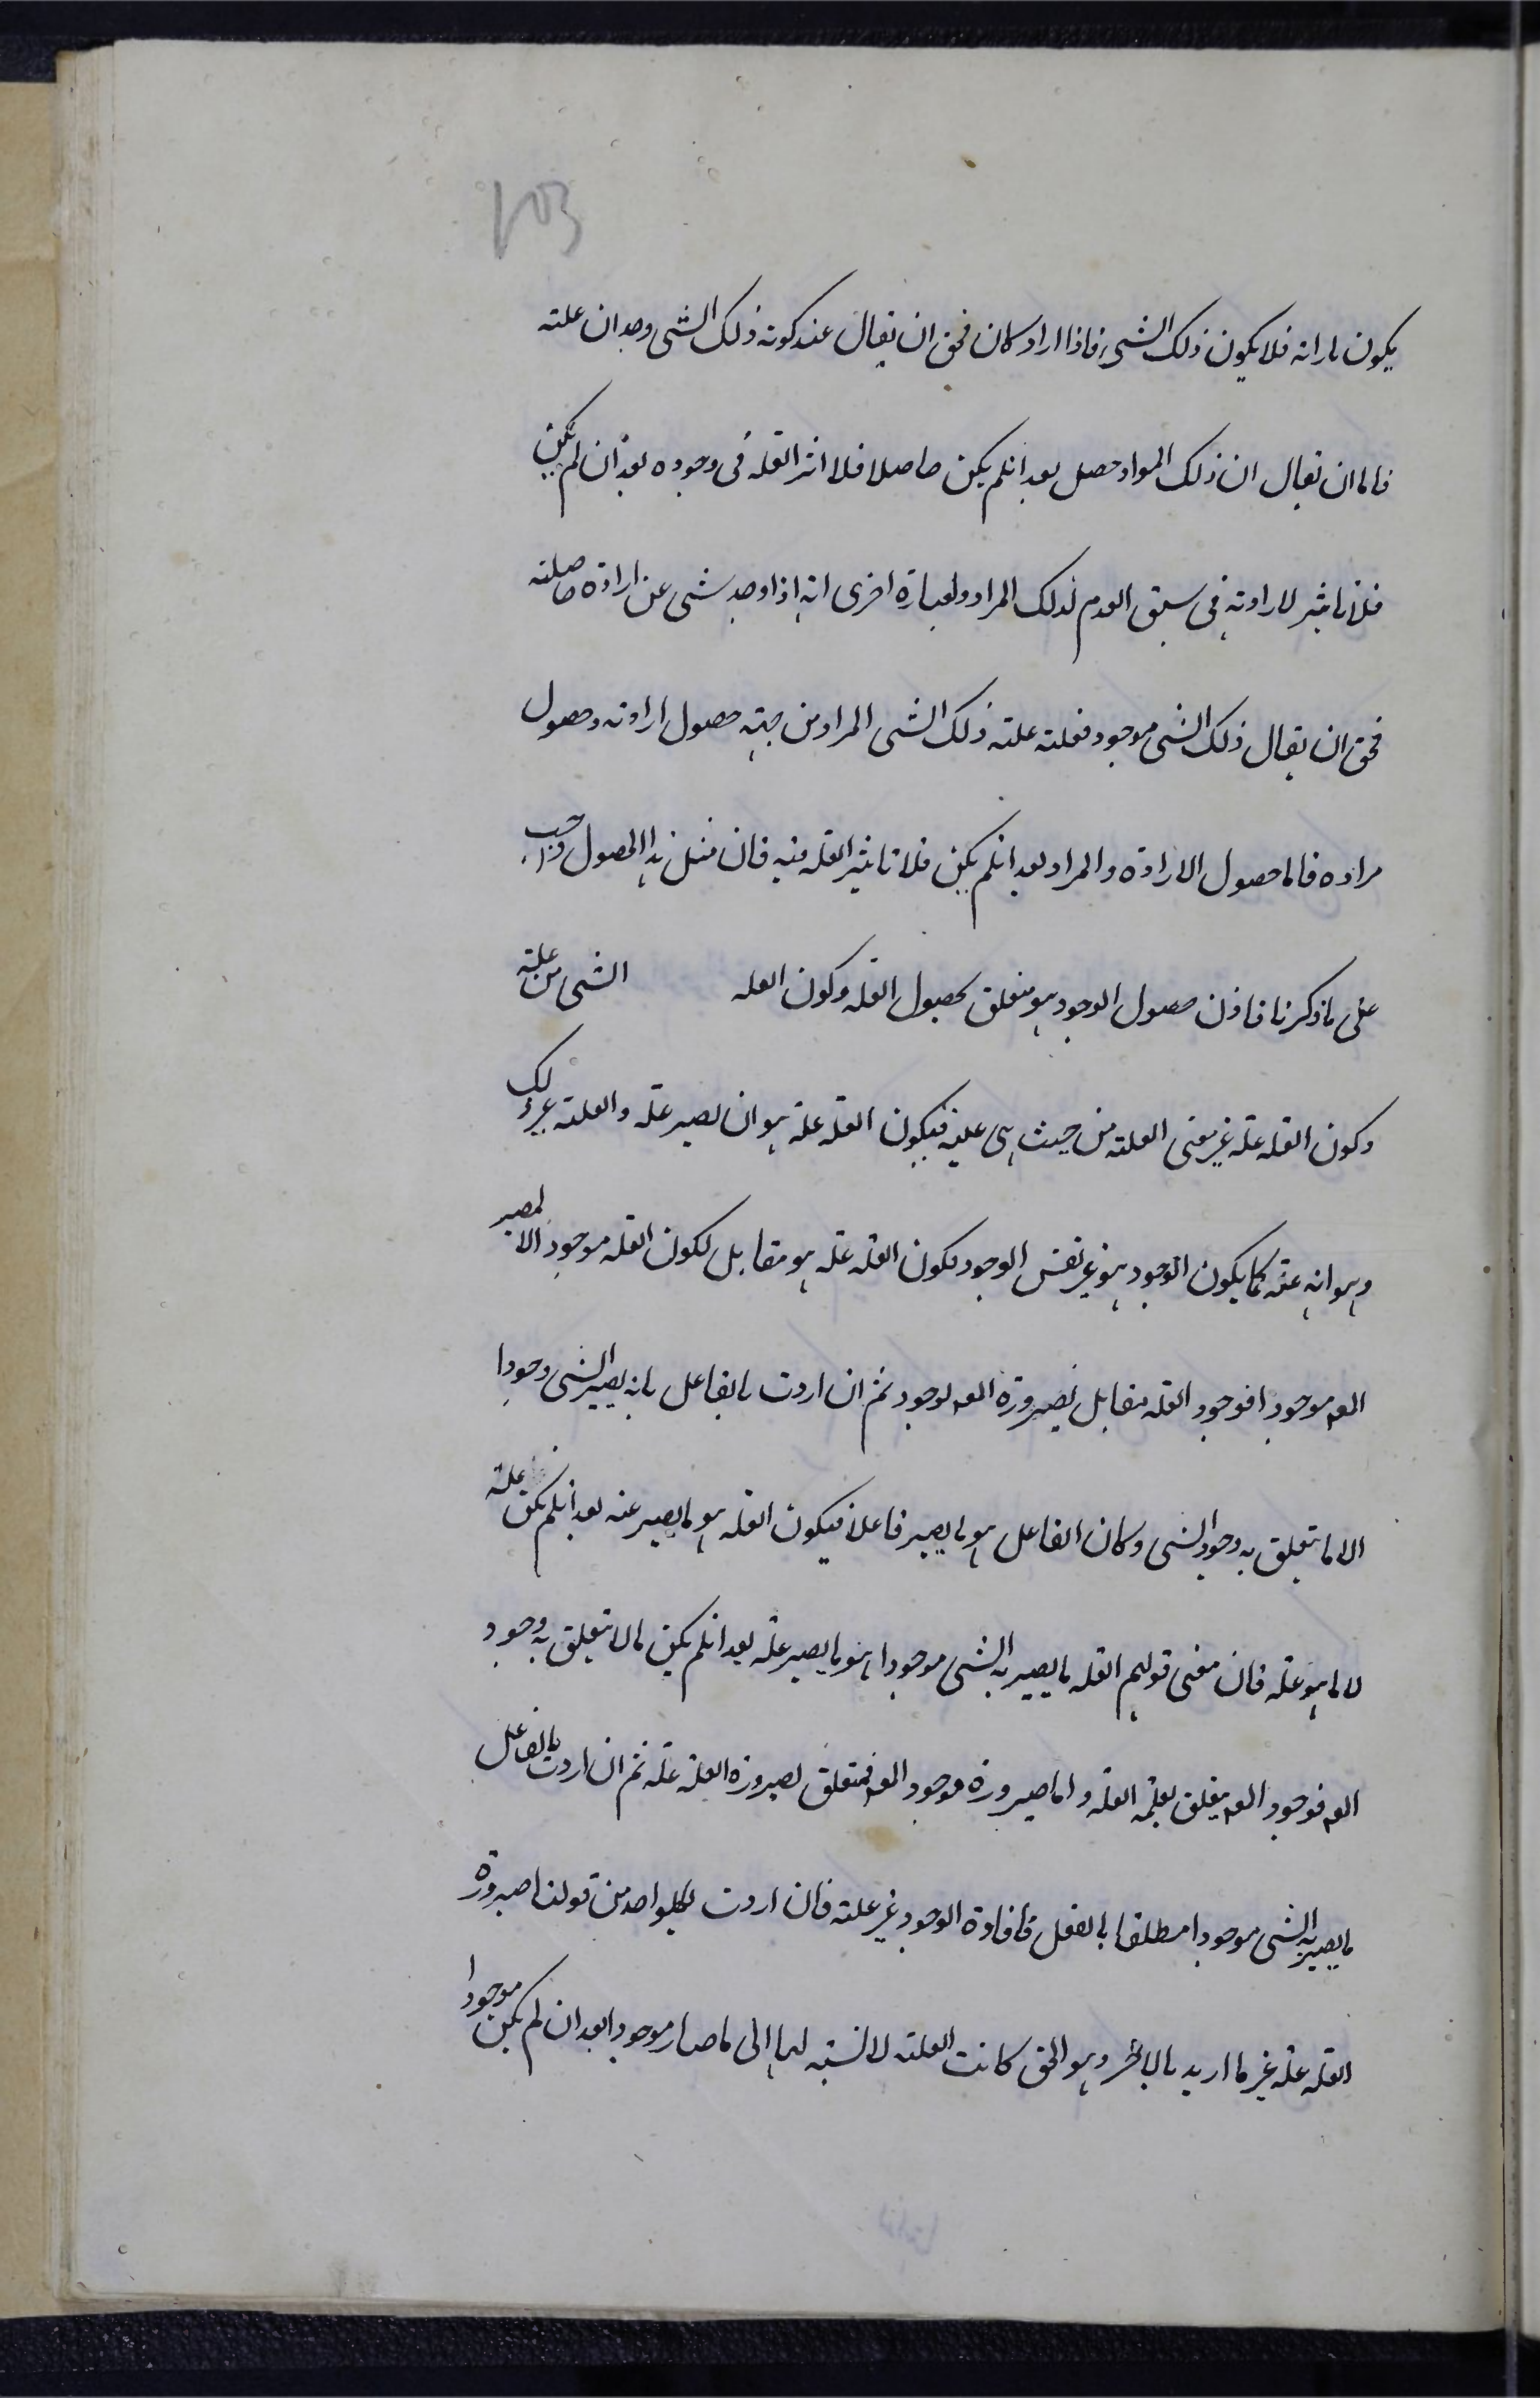 103
يكون مارانه فلا يكون ذلك الشى فاذا اراد كان فحق ان يقال عند كونه ذلك الشى وجد ان علته
فاما ان يقال ان ذلك المواد حصل بعد انلم يكن حاصلا فلا اثر العله فى وجوده بعد ان لم يكن
فلا تاثير لارادته فى سبق العدم لذلك المراد ولعبارة اخرى انه اذا وجد شى عن ارادة حاصلته
فحق ان يقال ذلك الشى موجود فعلته علته ذلك الشى المراد من جهته حصول ارادته وحصول
مراده فاما حصول الارادة والمراد بعد انلم يكن فلا تاثير العله فيه فان مثل هذا الحصول واجب
على ما ذكرنا فاذن حصول الوجود هو متعلق بحصول العله وكون العله الشى من علته
وكون العله علة غير معنى العلته من حيث هى عليه فيكون العله علة هو ان لصير علة والعلته غير ذلك
وهو انه علة كما يكون الوجود هو غير نفس الوجود فكون العله علة هو مقابل لكون العله موجود الا لمصير
المع موجودا فوجود العله مقابل لصيرورة المع لوجود ثم ان اردت بالفاعل مانه يصير الشى وجودا
الا ما يتعلق به وجود الشى وكان الفاعل هو ما يصير فاعلا فيكون العله هو ما يصير عنه بعد انلم يكن علته
لا ما هو علة فان معنى قولهم العله ما يصير به الشى موجودا هو ما يصير علة بعد انلم يكن ما لا يتعلق به وجود
المع فوجود المع يتعلق بعليته العله واما صيرورة موجود المع فمتعلق لصيرورة العلة علة ثم ان اردت بالفاعل
ما يصير به الشى موجودا مطلقا بالفعل فافادة الوجود غير علته فان اردت لكلواحد من قولنا صيرورة
العله علة غير ما اريد بالاخر وهو الحق كانت العلته لا لنسبته لها الى ما صار موجودا بعد ان لم يكن موجودا